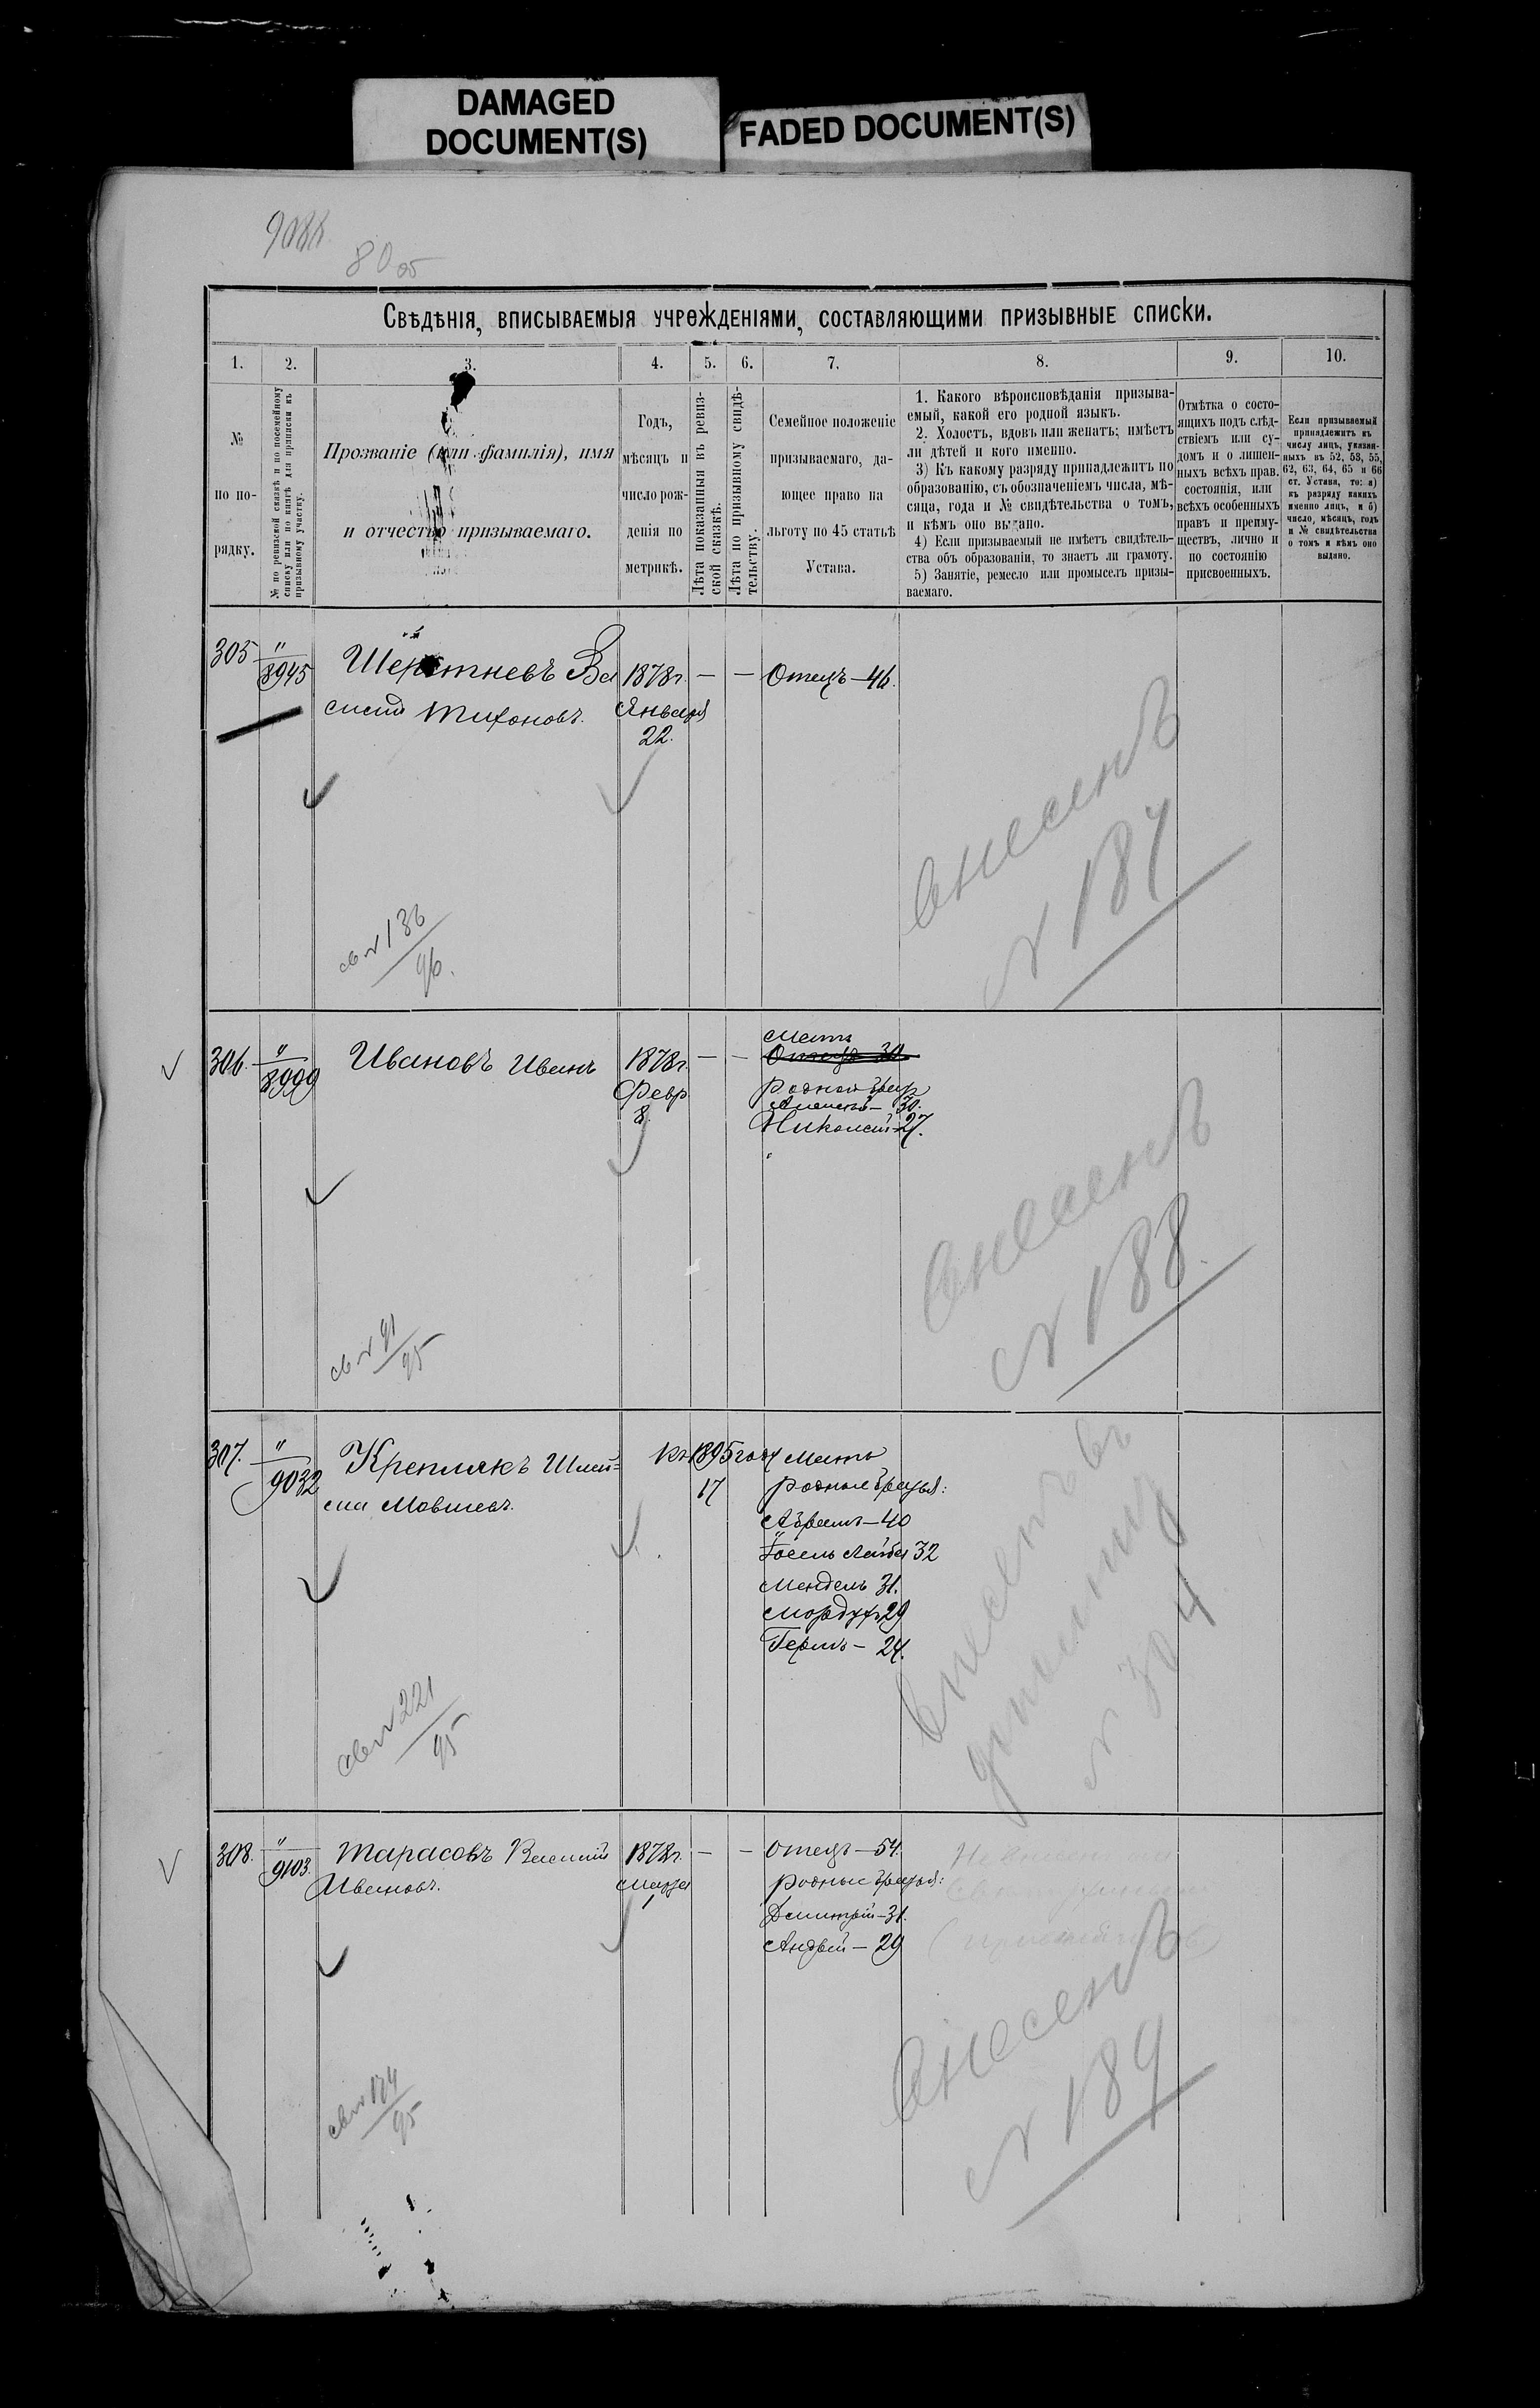 DAMAGED
DOCUMENT(S)
FADED DOCUMENT(S)
9088
80 05
Свѣдѣнія, вписываемыя учрежденіями, составляющими призывные списки.
1.
2.
3.
4.
5.
6.
7.
8.
9.
10.
№
по по-
рядку.
№ по ревизской сказкѣ и по посемейному
списку или по книгѣ для приписки къ
призывному участку.
Прозваніе (или фамилія), имя
и отчество призываемаго.
Годъ,
мѣсяцъ и
число рож-
денія по
метрикѣ.
Лѣта показанныя въ ревиз-
ской сказкѣ.
Лѣта по призывному свидѣ-
тельству.
Семейное положеніе
призываемаго, да-
ющее право на
льготу по 45 статьѣ
Устава.
1. Какого вѣроисповѣданія призыва-
емый, какой его родной языкъ.
2. Холостъ, вдовъ или женатъ; имѣетъ
ли дѣтей и кого именно.
3) Къ какому разряду принадлежитъ по
образованію, съ обозначеніемъ числа, мѣ-
сяца, года и № свидѣтельства о томъ,
и кѣмъ оно выдано.
4) Если призываемый не имѣетъ свидѣтель-
ства объ образованіи, то знаетъ ли грамоту.
5) Занятіе, ремесло или промыселъ призы-
ваемаго.
Отмѣтка о состо-
ящихъ подъ слѣд-
ствіемъ или су-
домъ и о лишен-
ныхъ всѣхъ прав.
состоянія, или
всѣхъ особенныхъ
правъ и преиму-
ществъ, лично и
по состоянію
присвоенныхъ.
Если призываемый
принадлежитъ къ
числу лицъ, указан-
ныхъ въ 52, 53, 55,
62, 63, 64, 65 и 66
ст. Устава, то: а)
къ разряду какихъ
именно лицъ, и б)
число, мѣсяцъ, годъ
и № свидѣтельства
о томъ и кѣмъ оно
выдано.
305
"
8945
Шерстневъ Ва
силій Тихоновъ.
1878г.
Января
22.
—
—
Отецъ—46.
внесенъ
№ 187
св № 136
96.
306.
"
8999
Ивановъ Иванъ
1878г.
Февр
8.
—
—
Мать
Отецъ 30
Родной брат
30.
Николай—27.
внесенъ
№ 188.
св № 91
95
307.
"
9032
Креплякъ Шлей=
ма Мовшевъ.
къ 1895 году
17
Мать
родные братья:
Абрамъ—40
Іосель Лейба 32
Мендель 31.
Мордухъ 29
Германъ— 24.
Внесенъ въ
№ 304
св № 221
95
308.
"
9103.
Тарасовъ Василій
Ивановъ.
1878г.
Марта
1
—
—
Отецъ—54.
родные братья:
Дмитрій—31.
Андрей—29
Внесенъ
№ 189
св № 174
95